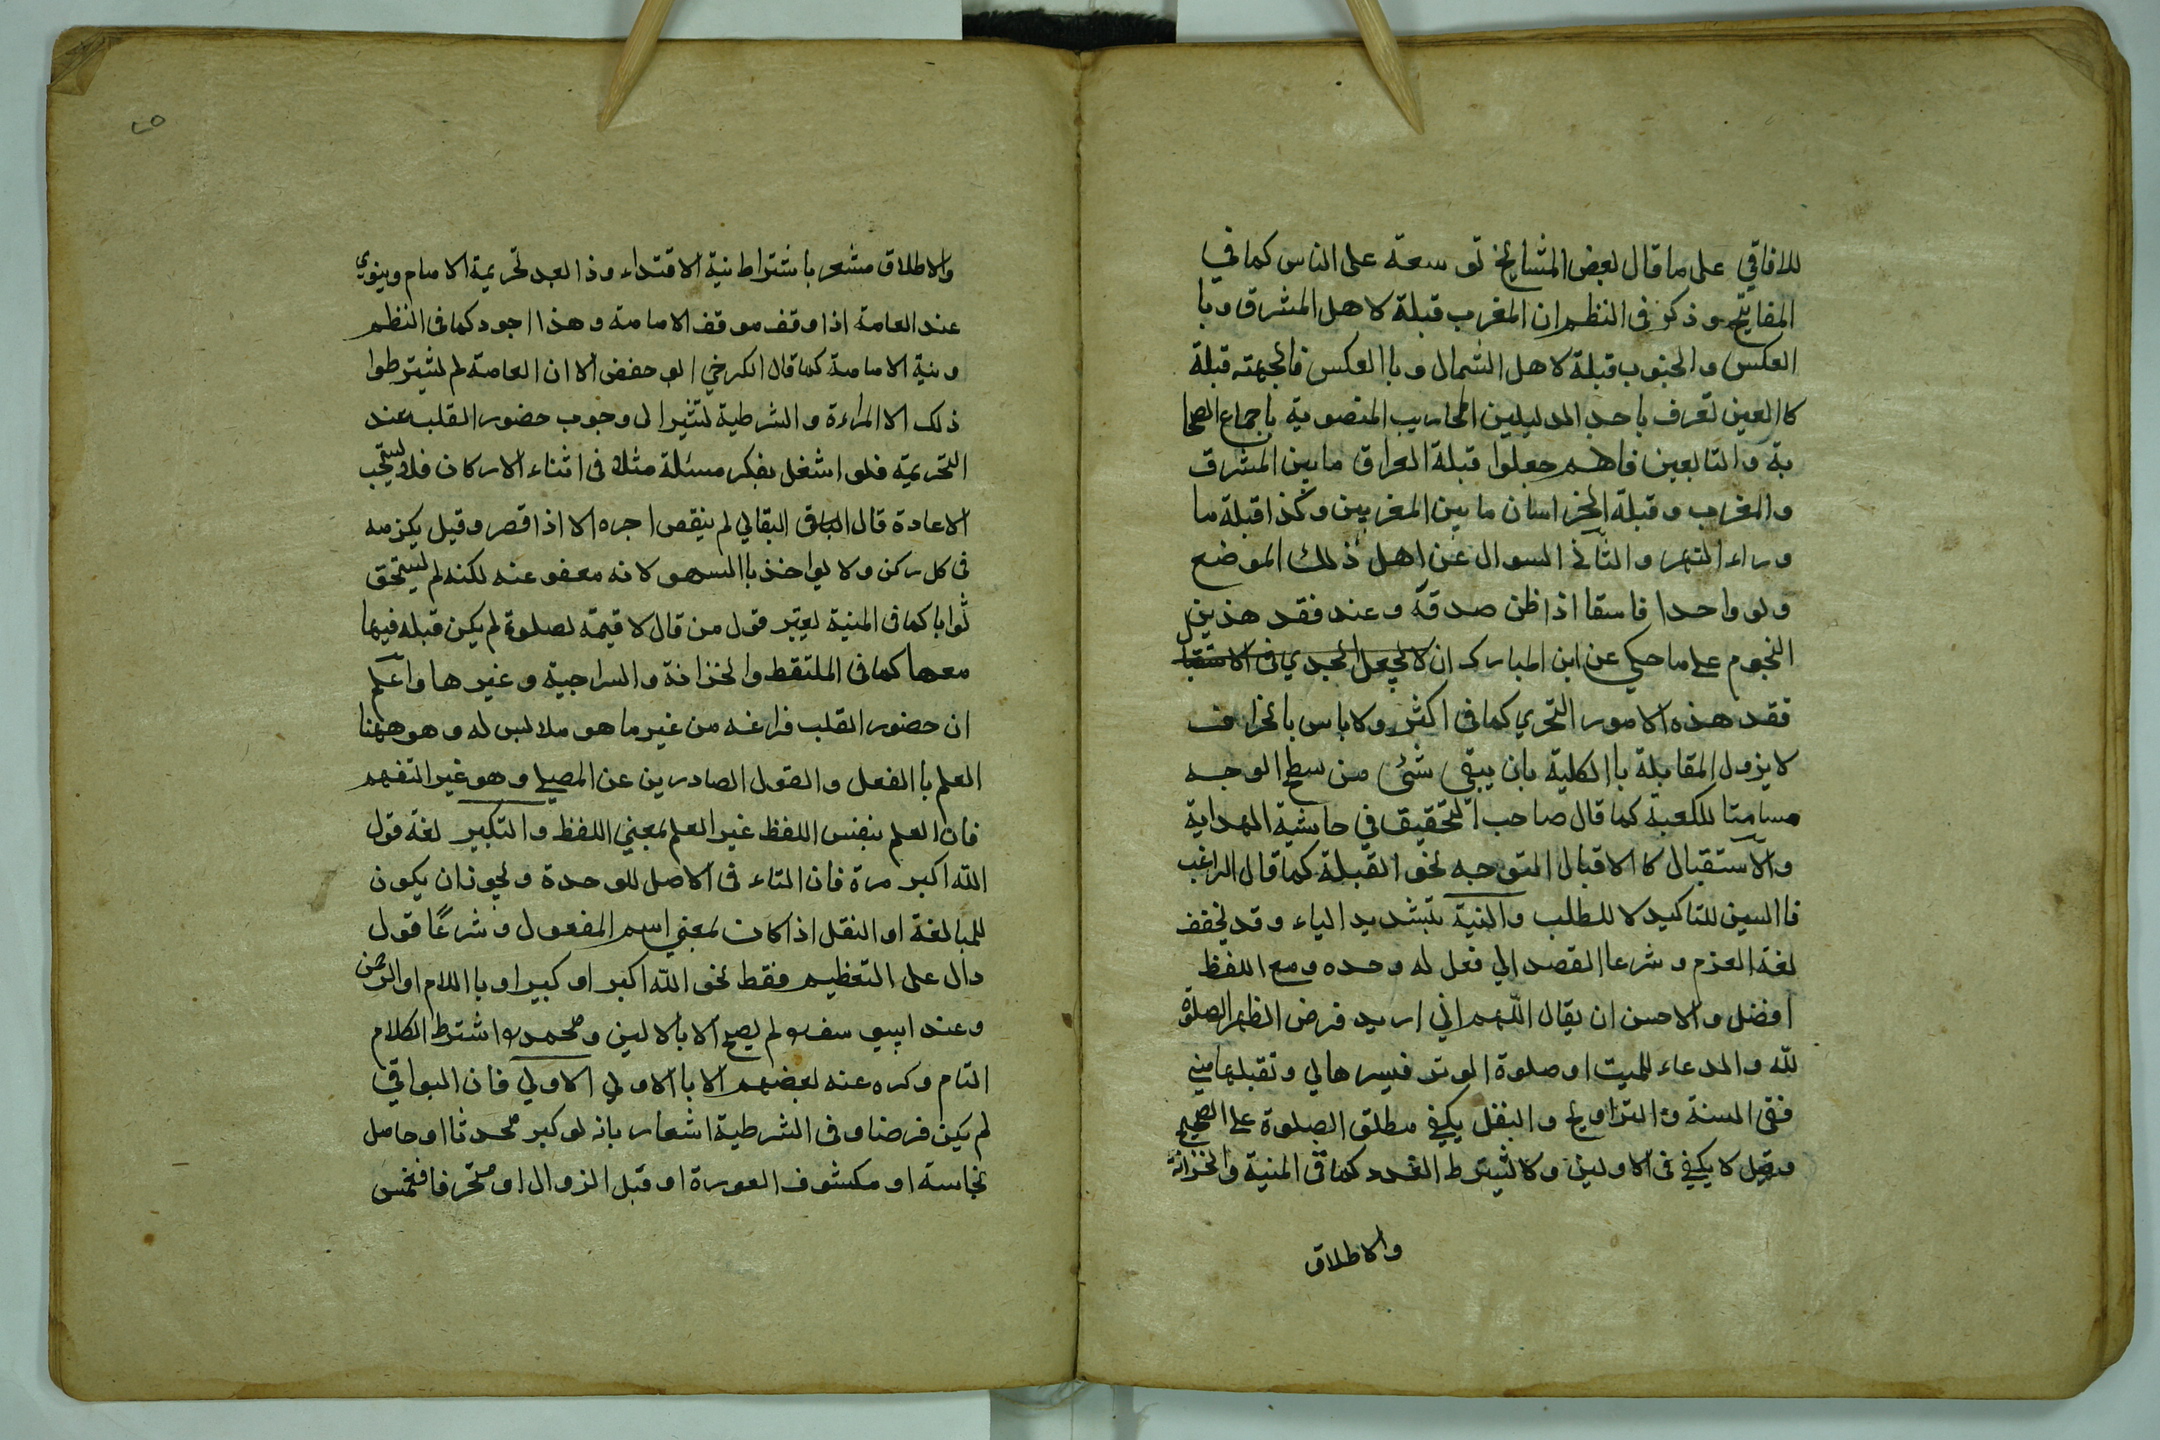 للافاقي على ما قال بعض المشايخ توسعة على الناس كما في
المفاتيح وذكر في النظم ان المغرب قبلة لاهل المشرق وبا
العكس والجنوب قبلة لاهل الشمال وبا العكس فالجهة قبلة
كا العين تعرف باحد الدليلين المحاريب المنصوبة باجماع الصحا
بة والتابعين فاهم جعلوا قبلة العراق ما بين المشرق
والمغرب وقبلة الخراسان ما بين المغربين وكذا قبلة ما
وراء النهر والثاني السوال عن اهل ذلك الموضع
ولو واحدا فاسقا اذا ظن صدقة وعند فقد هذين
النجوم على ما حكي عن ابن المبارك ان لا يجعل الجدي في الاستقبا
فقد هذه الامور التحري كما في اكثر ولا باس بانحراف
لا يزول المقابلة با الكلية بان يبقى شئ من سطح الوجه
مسامتا للكعبة كما قال صاحب التحقيق في حاشية الهداية
والاستقبال كا الاقبال التوجه نحو القبلة كما قال الراغب
فا السين للتاكيد لا للطلب والنية بتشديد الياء وقد يخفف
لغة العزم وشرعا القصد الي فعل له وحده ومع اللفظ
افضل والاحسن ان يقال اللهم اني اريد فرض الظهر الصلوة
لله والدعاء للميت او صلوة الوتر فيسرها لي وتقبلها مني
ففى السنة والتراويح والنفل يكفي مطلق الصلوة على الصحيح
وقيل لا يكفي في الاولين ولا يشترط العدد كما في المنية والخزانة
والاطلاق
والاطلاق مشعر باشتراط نية الاقتداء وذا بعد تحريمة الامام وينوي
عند العامة اذا وقف موقف الامامة وهذا اجود كما في النظم
ونية الامامة كما قال الكرخي ابو حفص الا ان العامة لم يشترطوا
ذلك الا المراءة والشرطية تشير الى وجوب حضور القلب عند
التحريمة فلو اشغل بفكر مسئلة مثلا في اثناء الاركان فلا يستحب
الاعادة قال البقالي لم ينقص اجره الا اذا قصر وقيل يلزمه
في كل ركن ولا يواخذ با السهو لانه معفو عنه لكنه لم يستحق
ثوابا كما في المنية يعتبر قول من قال لا قيمة لصلوة لم يكن قبله فيها
معها كما في الملتقط والخزانة والسراجية وغيرها واعلم
ان حضور القلب فراغه من غير ما هو ملابس له وهو ههنا
العلم با الفعل والقول الصادرين عن المصلي وهو غير التفهم
فان العلم بنفس اللفظ غير العلم بمعني اللفظ والتكبير لغة قول
الله اكبر مرة فان التاء في الاصل للوحدة ويجوز ان يكون
للمبالغة او النقل اذا كان بمعني اسم المفعول وشرعًا قول
دال على التعظيم فقط نحو الله اكبر او كبير او با اللام او الرحمن
وعند ابي يوسف لم يصح الا بالالين ومحمد اشترط الكلام
التام وكره عنه بعضهم الا با الاولي الاولي فان البواقي
لم يكن فرضا وفي الشرطية اشعار بانه لو كبر محدثا او حامل
نجاسة او مكشوف العورة او قبل الزوال او منحرفا